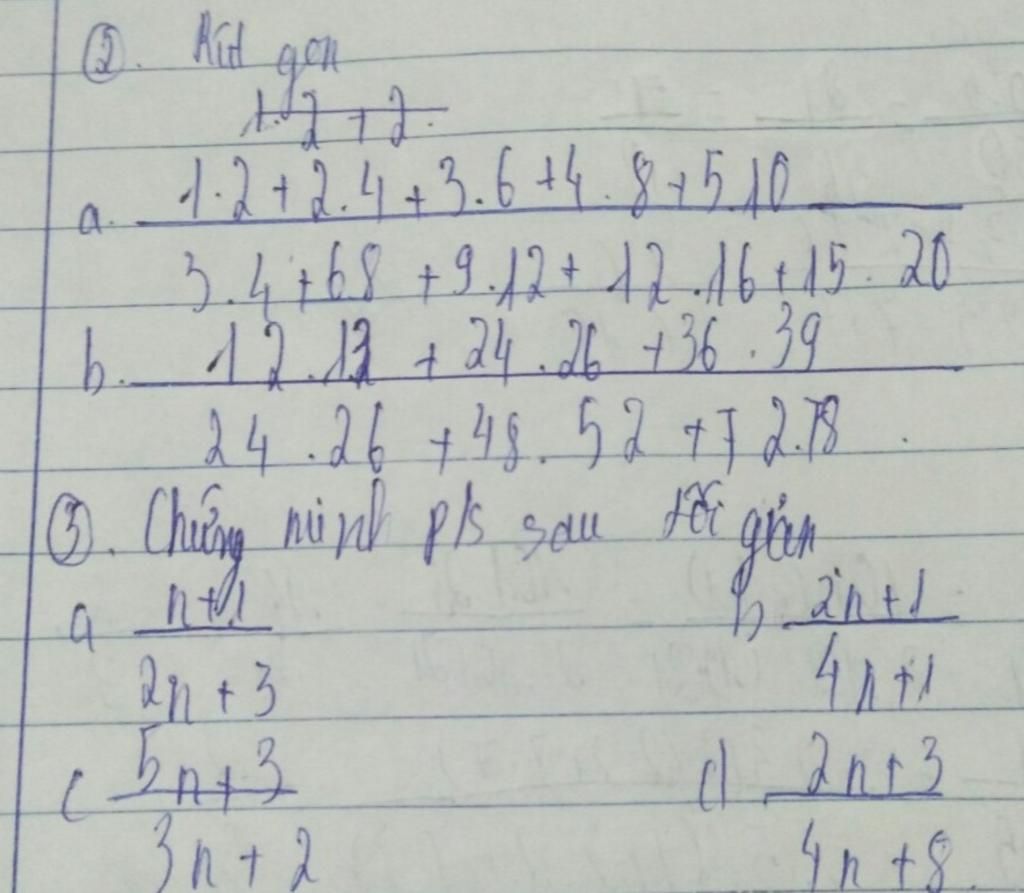 ②. Rút gọn
1.2+2.
a. 1.2+2.4+3.6+4.8+5.10
3.4+6.8+9.12+12.16+15.20
b. 12.13+24.26+36.39
24.26+48.52+72.78
③. Chứng minh p/s sau tối giản
a n+1 b 2n+1
2n+3 4n+1
c 5n+3 d 2n+3
3n+2 4n+8